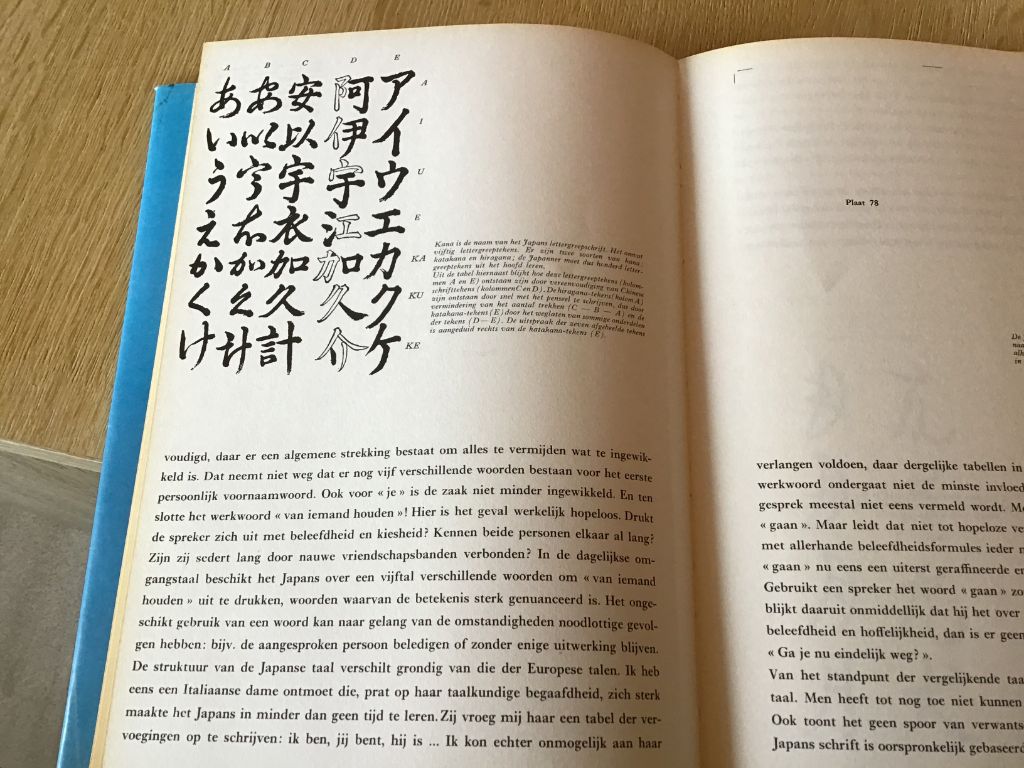 A B C D E
あ 安 安 阿 ア A
い 以 以 伊 イ I
う 宇 宇 宇 ウ U
え 衣 衣 江 エ E
か 加 加 加 カ KA
く 久 久 久 ク KU
け 計 計 介 ケ KE
Kana is de naam van het Japans lettergreepschrift. Het omvat
vijftig lettergreeptekens. Er zijn twee soorten van kana:
katakana en hiragana; de Japanner moet dus honderd letter-
greeptekens uit het hoofd leren.
Uit de tabel hiernaast blijkt hoe deze lettergreeptekens (kolom-
men A en E) ontstaan zijn door vereenvoudiging van Chinese
schrifttekens (kolommen C en D). De hiragana-tekens (kolom A)
zijn ontstaan door snel met het penseel te schrijven, dat door
vermindering van het aantal trekken (C — B — A) en de
katakana-tekens (E) door het weglaten van sommige onderdelen
der tekens (D — E). De uitspraak der zeven afgebeelde tekens
is aangeduid rechts van de katakana-tekens (E).
voudigd, daar er een algemene strekking bestaat om alles te vermijden wat te ingewik-
keld is. Dat neemt niet weg dat er nog vijf verschillende woorden bestaan voor het eerste
persoonlijk voornaamwoord. Ook voor « je » is de zaak niet minder ingewikkeld. En ten
slotte het werkwoord « van iemand houden »! Hier is het geval werkelijk hopeloos. Drukt
de spreker zich uit met beleefdheid en kiesheid? Kennen beide personen elkaar al lang?
Zijn zij sedert lang door nauwe vriendschapsbanden verbonden? In de dagelijkse om-
gangstaal beschikt het Japans over een vijftal verschillende woorden om « van iemand
houden » uit te drukken, woorden waarvan de betekenis sterk genuanceerd is. Het onge-
schikt gebruik van een woord kan naar gelang van de omstandigheden noodlottige gevol-
gen hebben: bijv. de aangesproken persoon beledigen of zonder enige uitwerking blijven.
De struktuur van de Japanse taal verschilt grondig van die der Europese talen. Ik heb
eens een Italiaanse dame ontmoet die, prat op haar taalkundige begaafdheid, zich sterk
maakte het Japans in minder dan geen tijd te leren. Zij vroeg mij haar een tabel der ver-
voegingen op te schrijven: ik ben, jij bent, hij is ... Ik kon echter onmogelijk aan haar
Plaat 78
De
in
verlangen voldoen, daar dergelijke tabellen in
werkwoord ondergaat niet de minste invloed
gesprek meestal niet eens vermeld wordt.
« gaan ». Maar leidt dat niet tot hopeloze
met allerhande beleefdheidsformules ieder
« gaan » nu eens een uiterst geraffineerde
Gebruikt een spreker het woord « gaan »
blijkt daaruit onmiddellijk dat hij het over
beleefdheid en hoffelijkheid, dan is er geen
« Ga je nu eindelijk weg? ».
Van het standpunt der vergelijkende
taal. Men heeft tot nog toe niet kunnen
Ook toont het geen spoor van
Japans schrift is oorspronkelijk